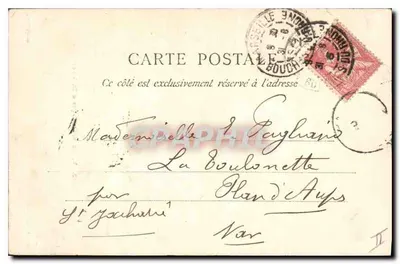 MARSEILLE
BOUCH
CARTE POSTALE
Ce côté est exclusivement réservé à l'adresse
Mademoiselle T. Pagliano
La Toulonette
par Plan d'Aups
St Zacharie
Var
II